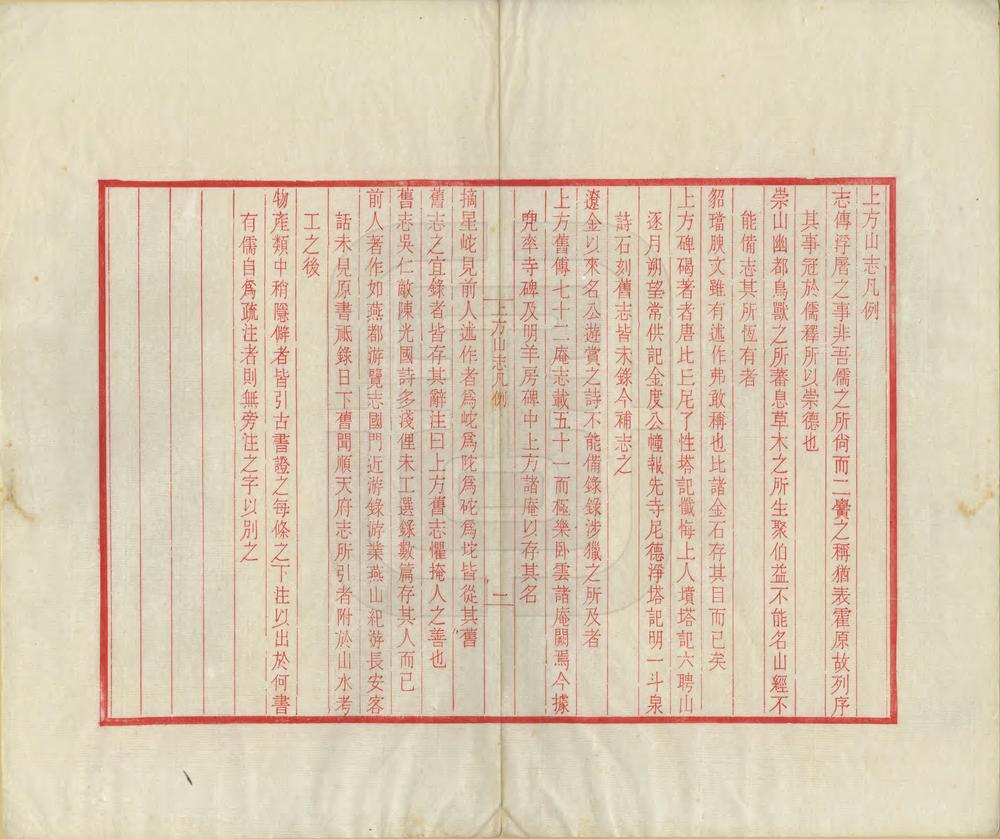 上方山志凡例
志傳浮屠之事非吾儒之所尙而二黌之稱猶表霍原故列序
其事冠於儒釋所以崇德也
崇山幽都鳥獸之所蕃息草木之所生聚伯益不能名山經不
能備志其所恆有者
貂璫腴文雖有述作弗敢稱也比諸金石存其目而已矣
上方碑碣著者唐比丘尼了性塔記懺悔上人墳塔記六聘山
逐月朔望常供記金度公幢報先寺尼德淨塔記明一斗泉
詩石刻舊志皆未錄今補志之
遼金以來名公遊賞之詩不能備錄錄涉獵之所及者
上方舊傳七十二庵志載五十一而極樂卧雲諸庵闕焉今據
兜率寺碑及明羊房碑中上方諸庵以存其名
上方山志凡例
一
摘星岮見前人述作者爲岮爲陀爲砣爲坨皆從其舊
舊志之宜錄者皆存其辭注曰上方舊志懼掩人之善也
舊志吳仁敵陳光國詩多淺俚未工選錄數篇存其人而已
前人著作如燕都游覽志國門近游錄游業燕山紀游長安客
話未見原書祗錄日下舊聞順天府志所引者附於山水考
工之後
物產類中稍隱僻者皆引古書證之每條之下注以出於何書
有儒自爲疏注者則無旁注之字以別之